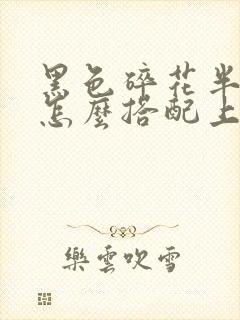 黑色碎花半
怎麼搭配上
樂雲吹雪